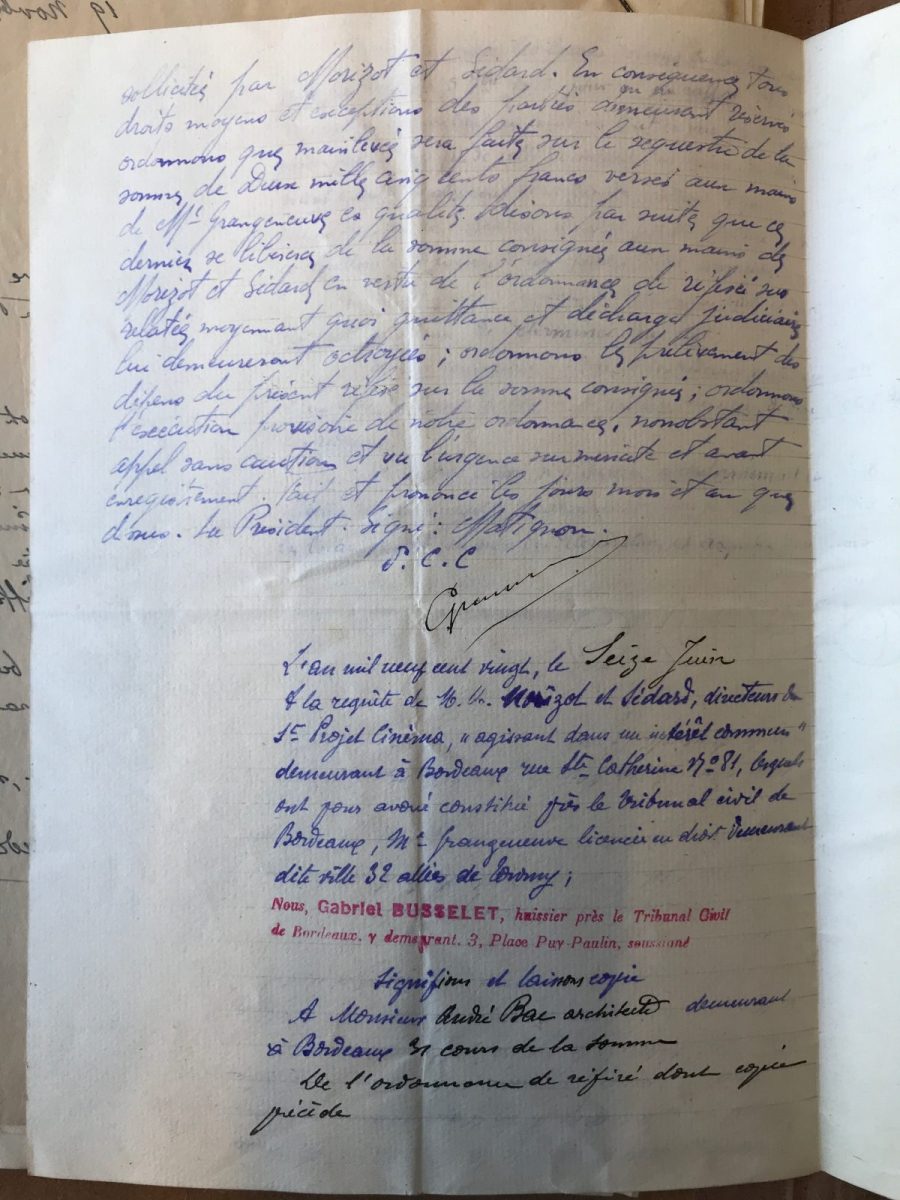 19 Nov
sollicitée par Morizot et Sédard. En conséquence tous
droits moyens et exceptions des parties demeurant réservés
ordonnons que mainlevée sera faite sur le séquestre de la
somme de Deux mille cinq cents francs versée aux mains
de Me Grangeneuve es qualité. disons par suite que ce
dernier se libérera de la somme consignée aux mains de
Morizot et Sédard en vertu de l'ordonnance de référé sus
relatée moyennant quoi quittance et décharge judiciaire
lui demeureront octroyées ; ordonnons le prélèvement des
dépens du présent référé sur la somme consignée ; ordonnons
l'exécution provisoire de notre ordonnance, nonobstant
appel sans caution et vu l'urgence sur minute et avant
enregistrement. fait et prononcé les jours mois et an que
dessus. Le Président. Signé : Matignon.
P. C. C
L'an mil neuf cent vingt, le Seize Juin
A la requête de M. M. Morizot et Sédard, directeurs du
Sté Projet Cinéma, "agissant dans un intérêt commun"
demeurant à Bordeaux rue Ste Catherine No 81, lesquels
ont pour avoué constitué près le tribunal civil de
Bordeaux, Me Grangeneuve licencié en droit demeurant
dite ville 32 allées de Tourny ;
Nous, Gabriel BUSSELET, huissier près le Tribunal Civil
de Bordeaux, y demeurant, 3, Place Puy-Paulin, soussigné
Signifions et laissons copie
A Monsieur André Bac architecte demeurant
à Bordeaux 31 cours de la Somme
De l'ordonnance de référé dont copie
précède